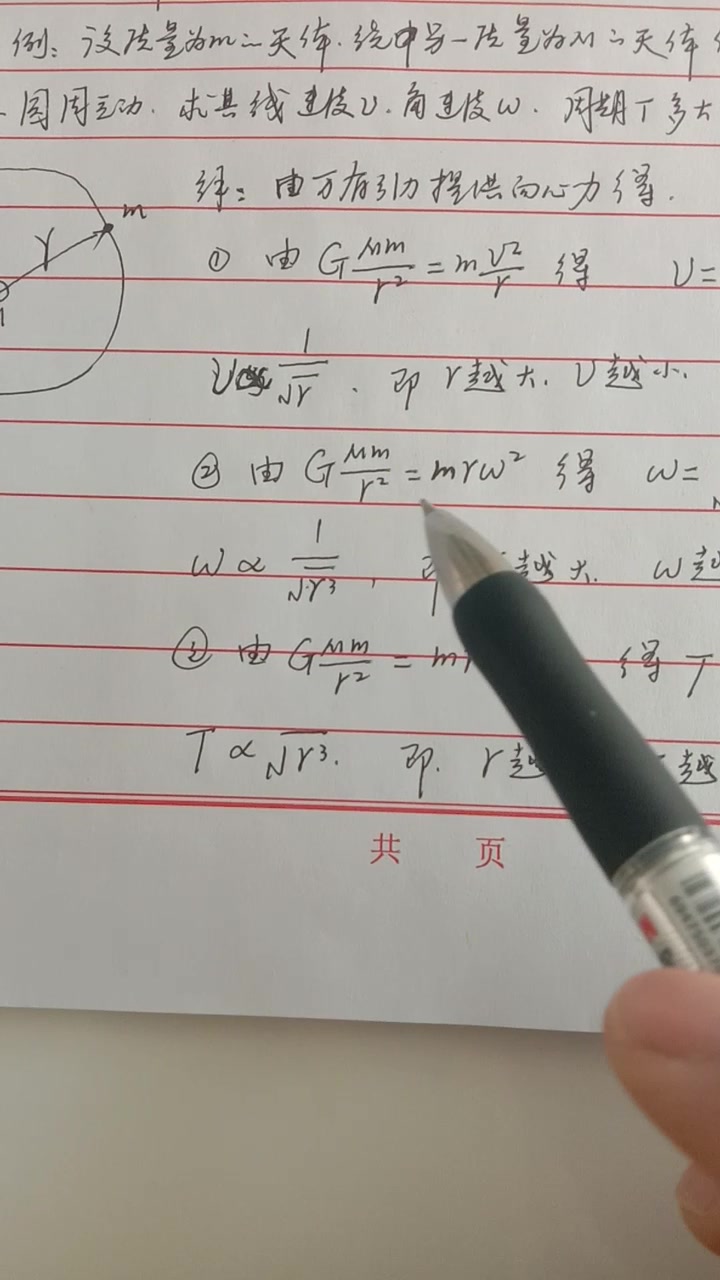 例：设质量为m之天体.绕中另一质量为M之天体
圆周运动. 求其线速度v.角速度ω. 周期T多大
解：由万有引力提供向心力得.
m
r
① 由 G Mm/r² = m v²/r 得 v=
v∝ 1/√r . 即 r越大. v越小.
② 由 G Mm/r² = mrω² 得 ω=
ω ∝ 1/√r³ , 即 越大. ω越
③ 由 G Mm/r² = m 得 T
T ∝ √r³. 即. r越 越
共 页